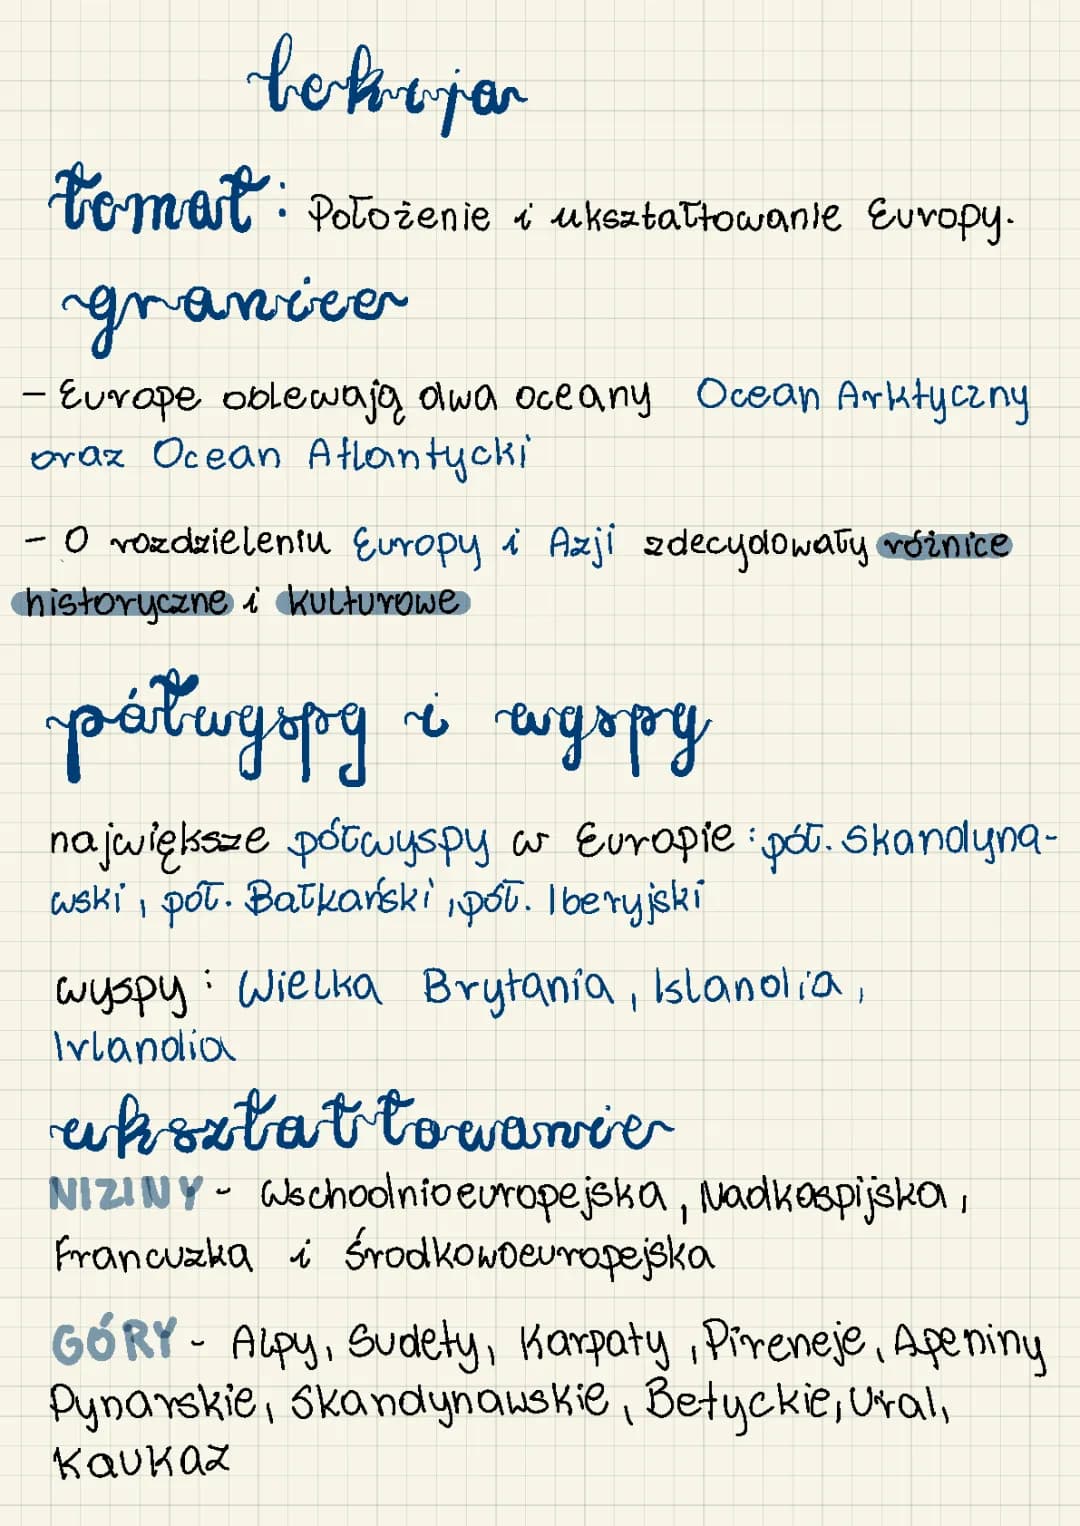 lekcja
temat: Położenie i ukształtowanie Europy.
granice
- Europe oblewają dwa oceany Ocean Arktyczny
oraz Ocean Atlantycki
- O rozdzieleniu Europy i Azji zdecydowały różnice
historyczne i kulturowe
półwyspy i wyspy
największe półwyspy w Europie: pół. Skandyna-
wski, pół. Bałkański, pół. Iberyjski
wyspy: Wielka Brytania, Islandia,
Irlandia
ukształtowanie
NIZINY - Wschodnioeuropejska, Nadkaspijska,
Francuzka i środkowoeuropejska
GÓRY - Alpy, Sudety, Karpaty, Pireneje, Apeniny
Dynarskie, Skandynawskie, Betyckie, Ural,
Kaukaz